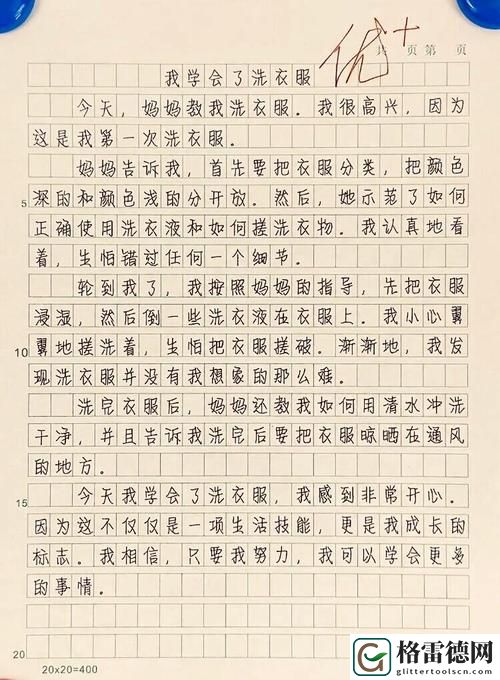 优+
共 页 第 页
我学会了洗衣服
今天，妈妈教我洗衣服。我很高兴，因为
这是我第一次洗衣服。
妈妈告诉我，首先要把衣服分类，把颜色
5 深的和颜色浅的分开放。然后，她示范了如何
正确使用洗衣液和如何搓洗衣物。我认真地看
着，生怕错过任何一个细节。
轮到我了，我按照妈妈的指导，先把衣服
浸湿，然后倒一些洗衣液在衣服上。我小心翼
10 翼地搓洗着，生怕把衣服搓破。渐渐地，我发
现洗衣服并没有我想象的那么难。
洗完衣服后，妈妈还教我如何用清水冲洗
干净，并且告诉我洗完后要把衣服晾晒在通风
的地方。
15 今天我学会了洗衣服，我感到非常开心。
因为这不仅仅是一项生活技能，更是我成长的
标志。我相信，只要我努力，我可以学会更多
的事情。
20
20x20=400
格雷德网
glittertoolscn.com